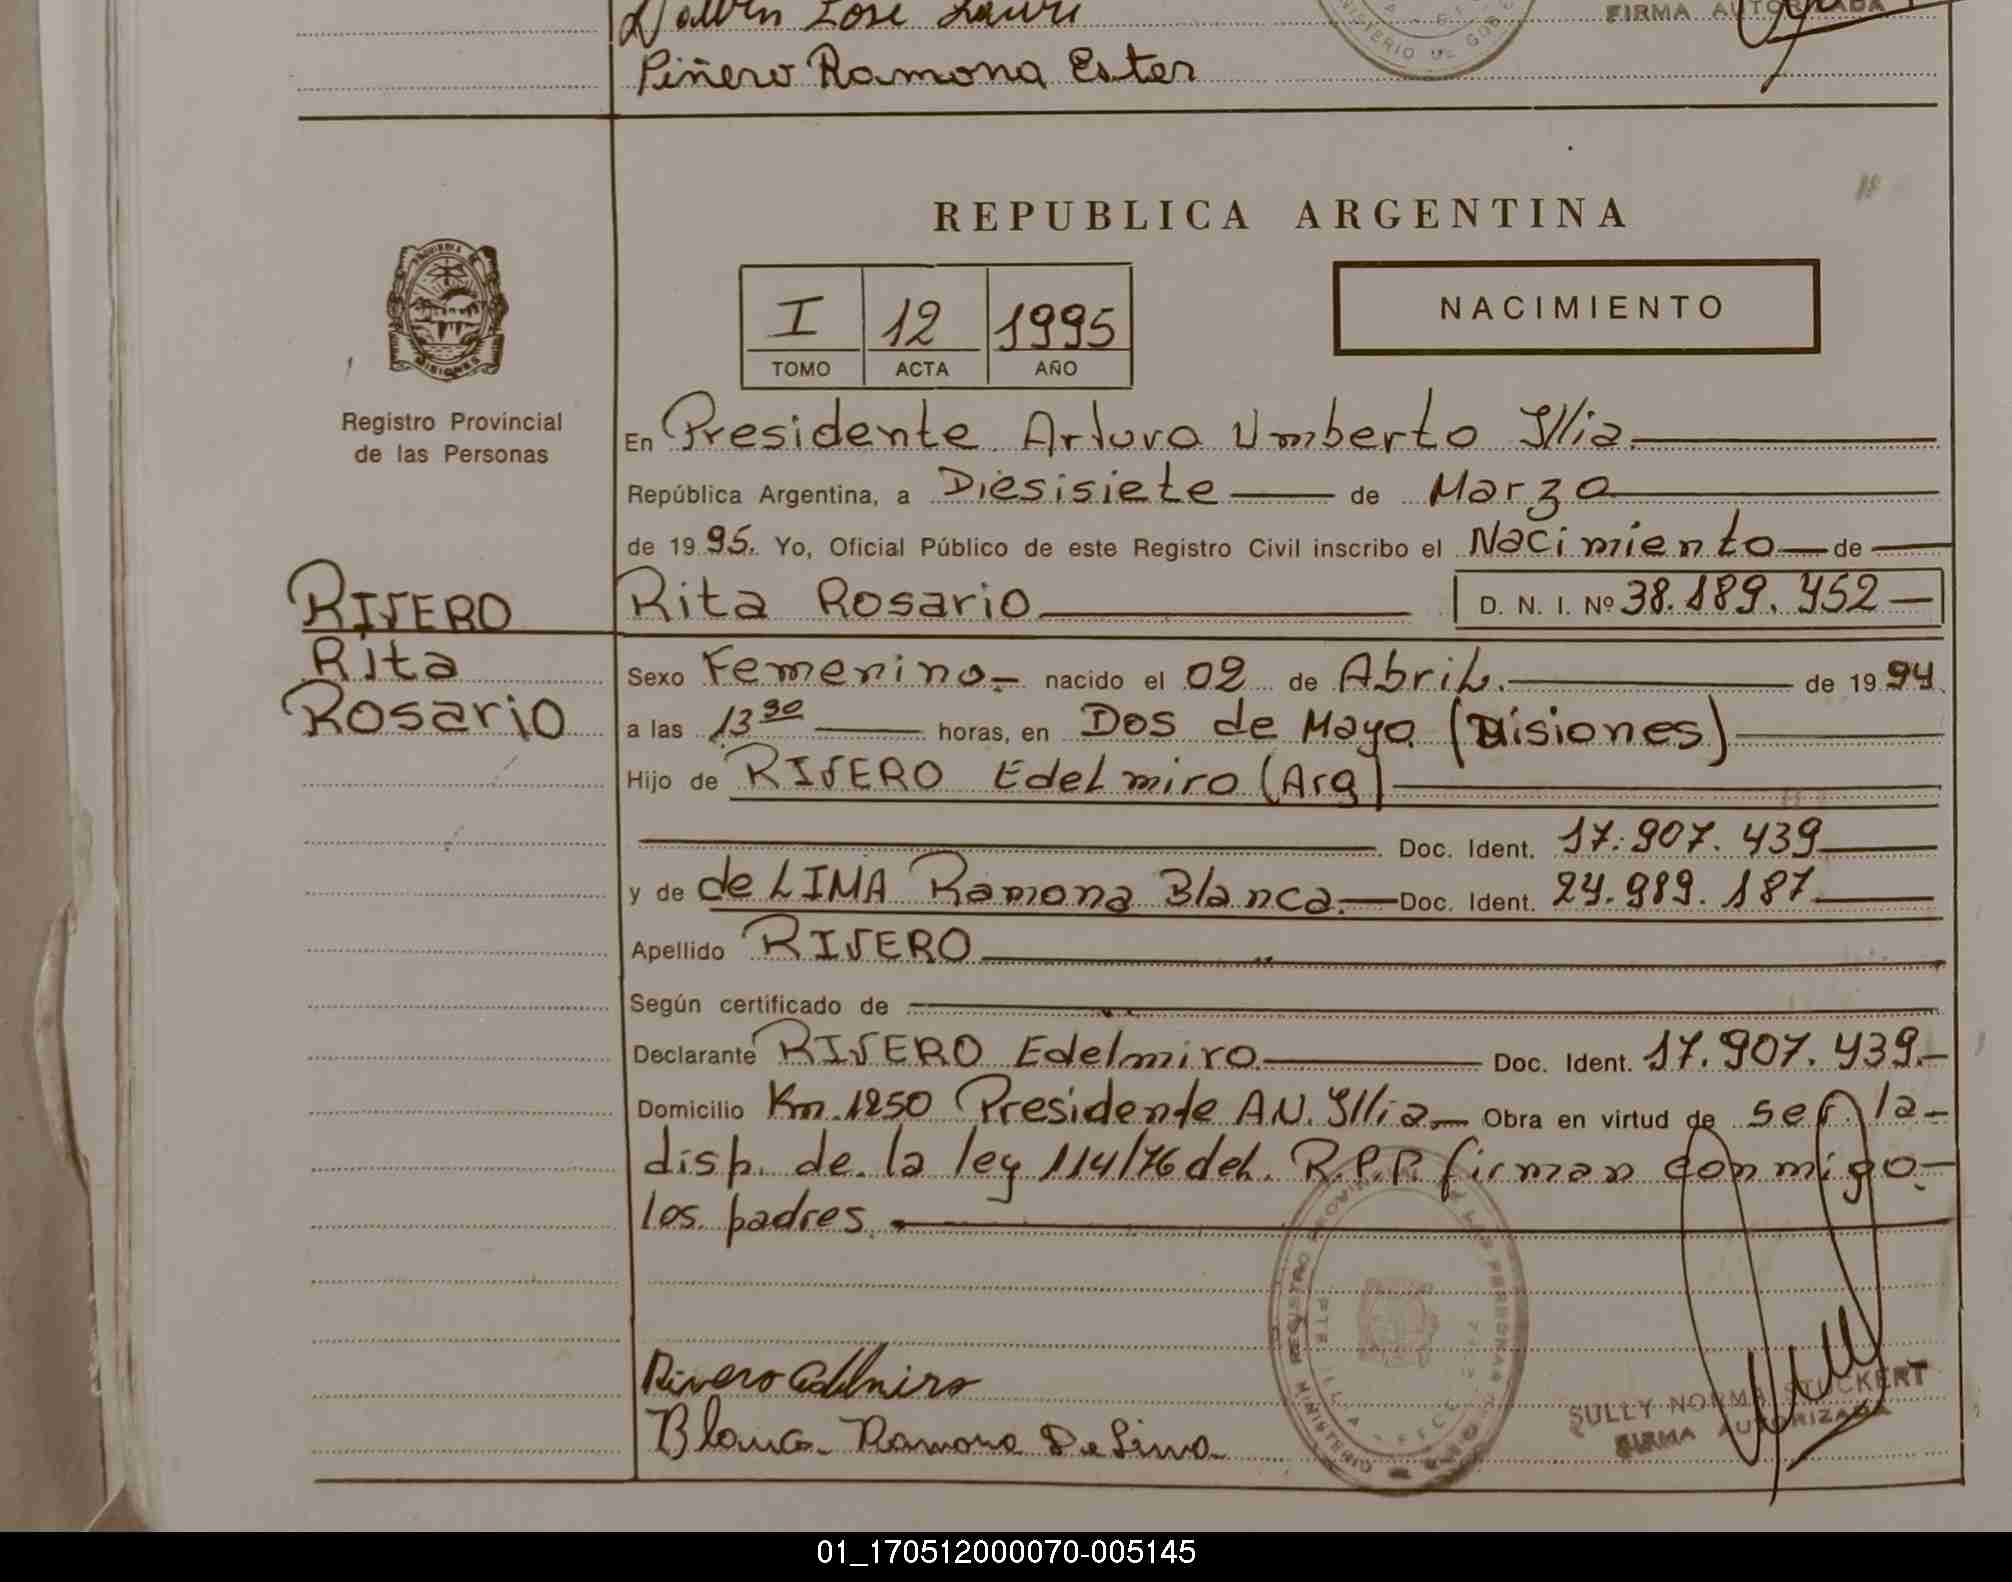 Piñero Ramona Ester
FIRMA AUTORIZADA
REPUBLICA ARGENTINA
I 12 1995
TOMO ACTA AÑO
NACIMIENTO
MISIONES
Registro Provincial
de las Personas
En Presidente Arturo Umberto Illia
República Argentina, a Diesisiete de Marzo
de 1995. Yo, Oficial Público de este Registro Civil inscribo el Nacimiento de
RIVERO
Rita
Rosario
Rita Rosario D. N. I. Nº 38.189.452
Sexo Femenino.- nacido el 02 de Abril. de 1994
a las 13 30 horas, en Dos de Mayo (Misiones)
Hijo de RIVERO Edelmiro (Arg)
Doc. Ident. 17.907.439
y de de LIMA Ramona Blanca.- Doc. Ident. 24.989.187
Apellido RIVERO
Según certificado de
Declarante RIVERO Edelmiro. Doc. Ident. 17.907.439.-
Domicilio Km.1250 Presidente A.U. Illia.- Obra en virtud de ser la-
disp. de la ley 114/76 del. R.P.P. firman conmigo.-
los padres.
Rivero Edelmiro
Blanca Ramona De Lima
SULLY NORMA STUCKERT
FIRMA AUTORIZADA
01_170512000070-005145